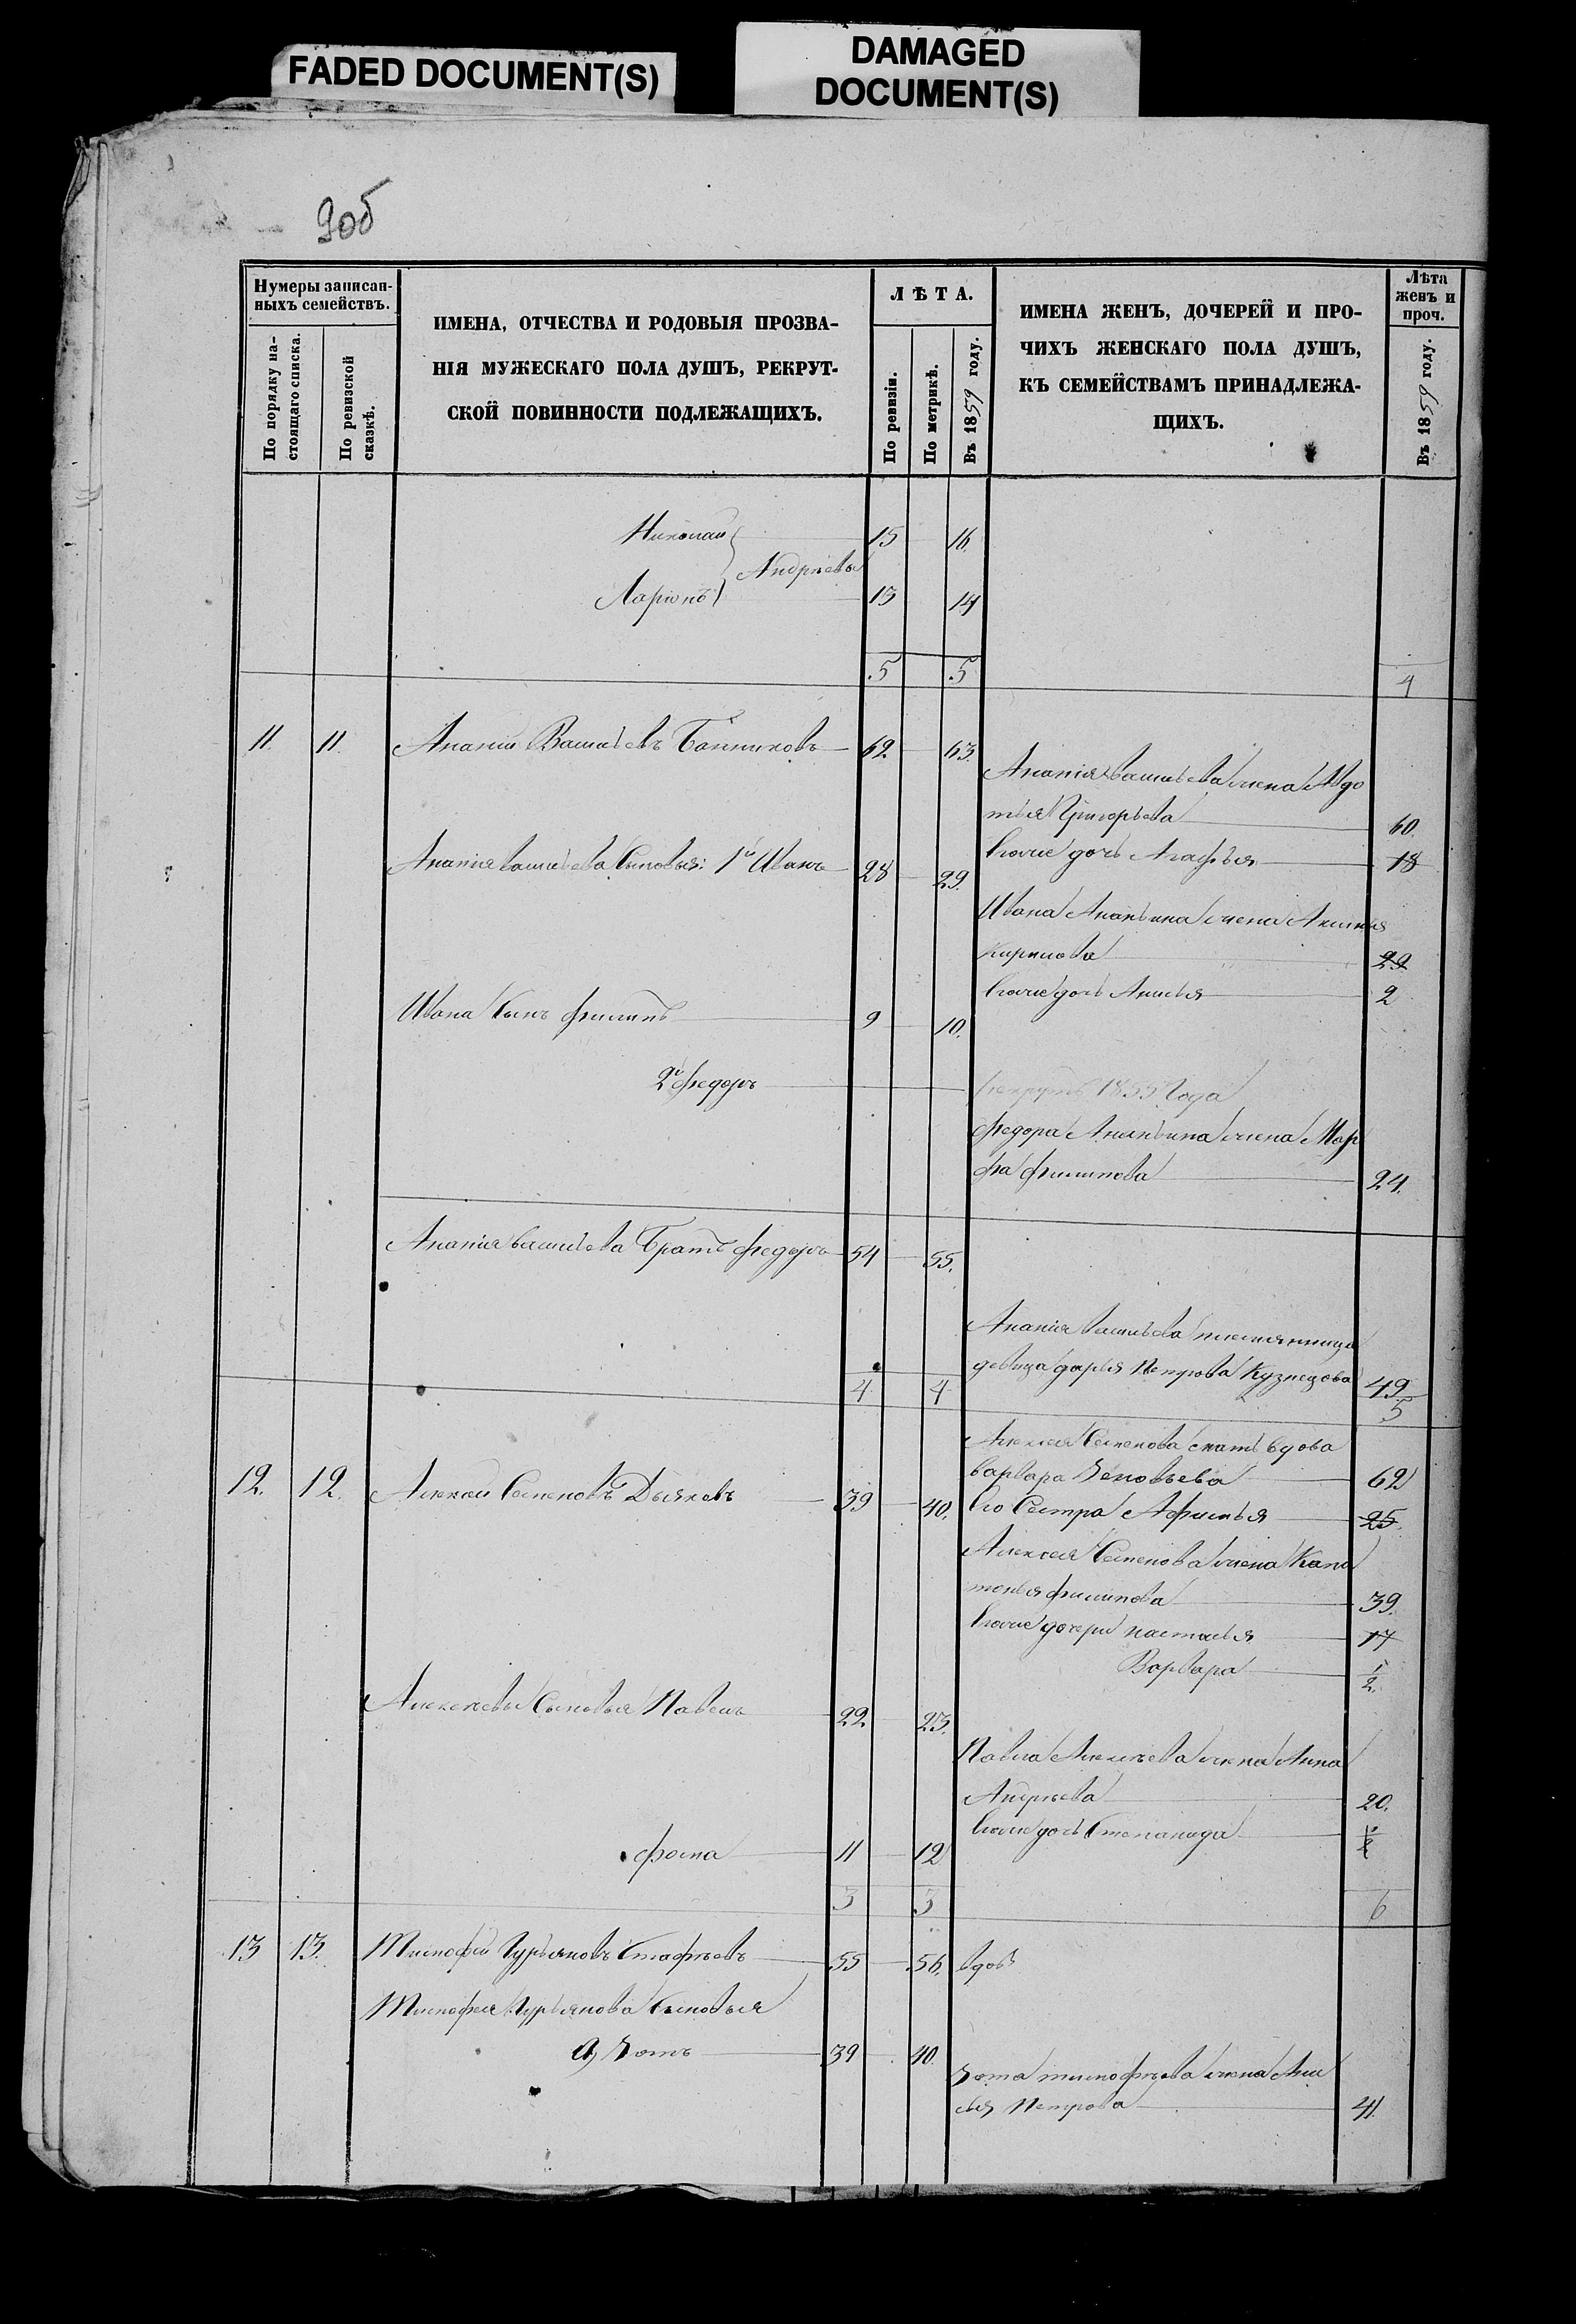 FADED DOCUMENT(S)
DAMAGED
DOCUMENT(S)
9об
Нумеры записан-
ныхъ семействъ.
По порядку на-
стоящаго списка.
По ревизской
сказкѣ.
ИМЕНА, ОТЧЕСТВА И РОДОВЫЯ ПРОЗВА-
НІЯ МУЖЕСКАГО ПОЛА ДУШЪ, РЕКРУТ-
СКОЙ ПОВИННОСТИ ПОДЛЕЖАЩИХЪ.
ЛѢТА.
По ревизіи.
По метрикѣ.
Въ 1859 году.
ИМЕНА ЖЕНЪ, ДОЧЕРЕЙ И ПРО-
ЧИХЪ ЖЕНСКАГО ПОЛА ДУШЪ,
КЪ СЕМЕЙСТВАМЪ ПРИНАДЛЕЖА-
ЩИХЪ.
Лѣта
женъ и
проч.
Въ 1859 году.
Николай 15 16.
Андрѣевы
Ларіонъ 13 14
5 5 4
11. 11. Ананій Васильевъ 62 63.
Ананія Васильева жена Авдо
тья Григорьева 60.
Ананія Васильева Сыновья: 1й Иванъ 28 29.
Ихъ же дочь Агафья 18
Ивана Ананьина жена Аксинья
Кирилова 29
Ихъ же дочь Анисья 2
Ивана Сынъ Филипъ 9 10.
2й Федоръ
рекрутъ 1855 Года
Федора Ананьина жена Мар
фа Филипова 24.
Ананія Васильева Братъ Федоръ 54 55.
Ананія Васильева племянница
девица Дарья Петрова Кузнецова 49
4 4 5
Алексея Семенова мать вдова
Варвара Зеновьева 62
12. 12. Алексей Семеновъ Дьяковъ 39 40.
Его Сестра Афимья 25
Алексея Семенова жена Капи
тонья Филипова 39.
Ихъ же дочери Настасья 17
Варвара 1/2.
Алексеевы Сыновья Павелъ 22 23.
Павла Алексѣева жена Анна
Андрѣева 20.
Ихъ же дочь Степанида
Фома 11 12
3 3 6
13 13. Тимофей Гурьяновъ 55 56. вдовъ
Тимофея Гурьянова Сыновья
а) Зотъ 39 40.
Зота Тимофѣева жена Ани
сья Петрова 41.